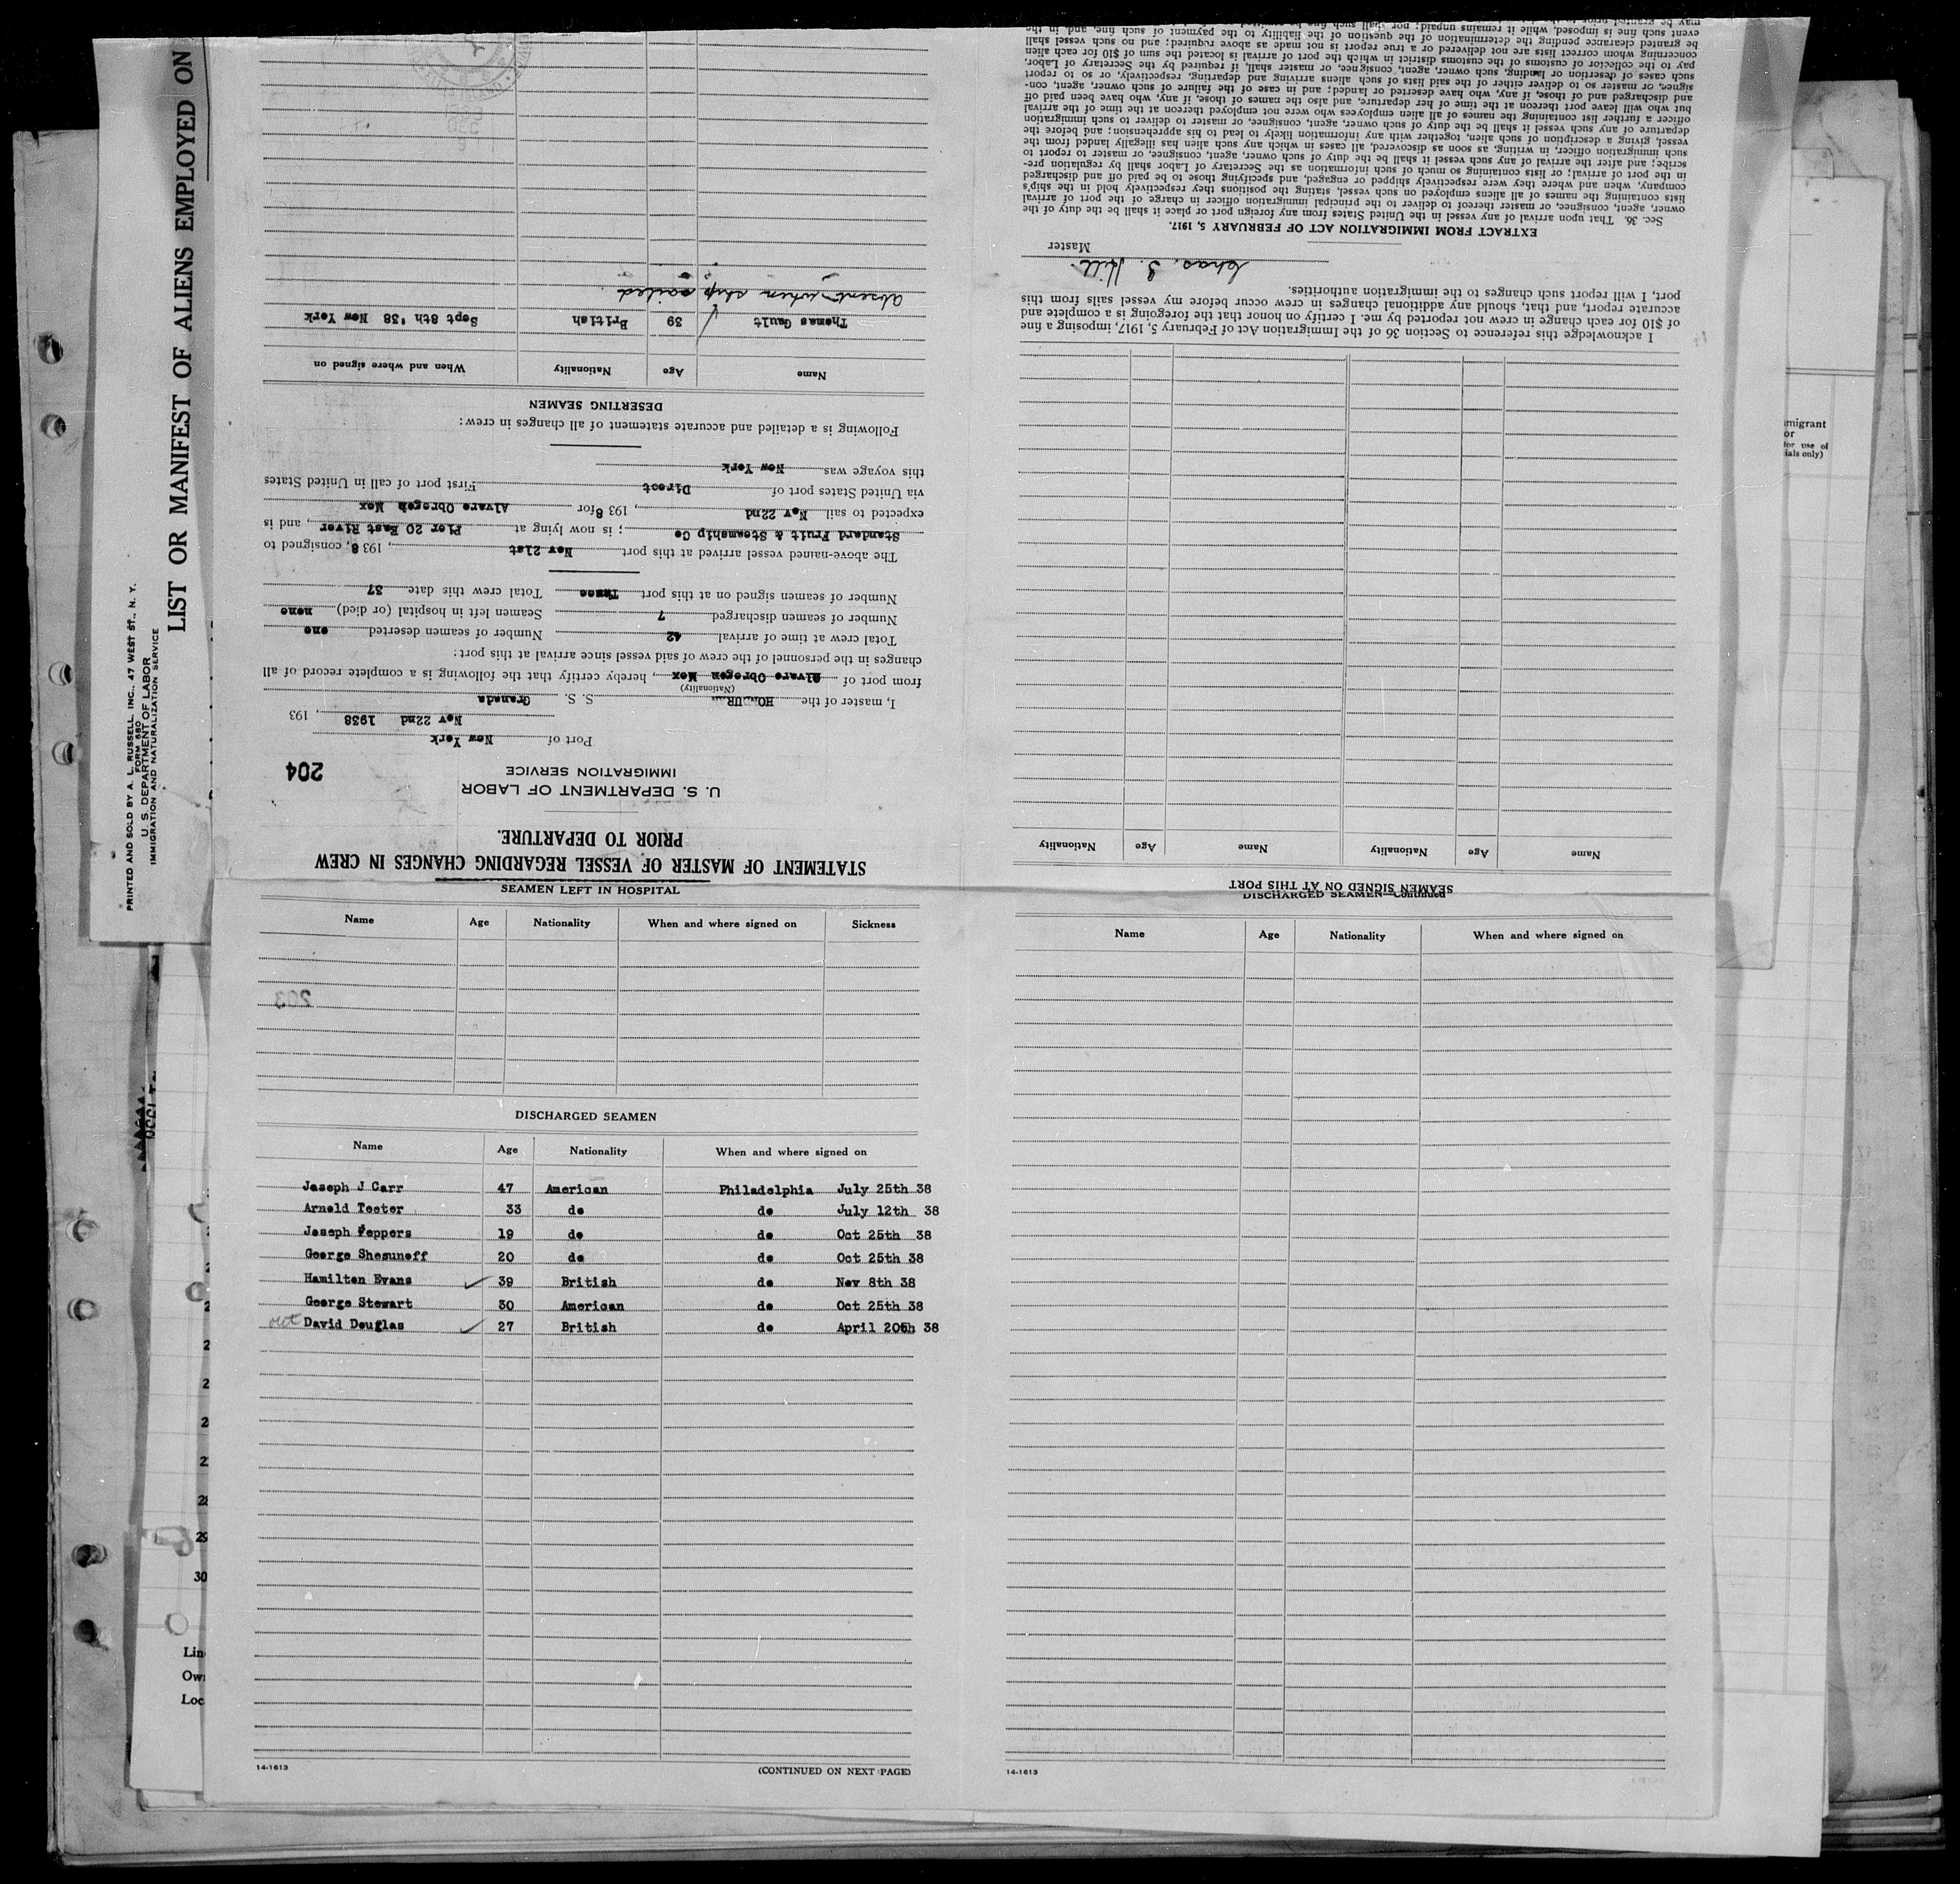 LIST OR MANIFEST OF ALIENS EMPLOYED ON
PRINTED AND SOLD BY A. L. RUSSELL, INC., 47 WEST ST., N. Y.
FORM 680
U. S. DEPARTMENT OF LABOR
IMMIGRATION AND NATURALIZATION SERVICE
STATEMENT OF MASTER OF VESSEL REGARDING CHANGES IN CREW
PRIOR TO DEPARTURE.
U. S. DEPARTMENT OF LABOR
IMMIGRATION SERVICE
204
Port of New York
Nov 22nd 1938, 193
I, master of the HONDUR S. S. Granada
(Nationality)
from port of Alvaro Obregon Mex, hereby certify that the following is a complete record of all
changes in the personnel of the crew of said vessel since arrival at this port:
Total crew at time of arrival 42 Number of seamen deserted one
Number of seamen discharged 7 Seamen left in hospital (or died) none
Number of seamen signed on at this port Three Total crew this date 37
The above-named vessel arrived at this port Nov 21st, 1938, consigned to
Standard Fruit & Steamship Co; is now lying at Pier 20 East River, and is
expected to sail Nov 22nd, 1938 for Alvaro Obregon Mex
via United States port of Direct First port of call in United States
this voyage was New York
Following is a detailed and accurate statement of all changes in crew:
DESERTING SEAMEN
Name Age Nationality When and where signed on
Thomas Gault 39 British Sept 8th '38 New York
Absent when ship sailed.
SEAMEN SIGNED ON AT THIS PORT
Name Age Nationality Name Age Nationality
I acknowledge this reference to Section 36 of the Immigration Act of February 5, 1917, imposing a fine
of $10 for each change in crew not reported by me. I certify on honor that the foregoing is a complete and
accurate report, and that, should any additional changes in crew occur before my vessel sails from this
port, I will report such changes to the immigration authorities.
Chas. S. Hill
Master
EXTRACT FROM IMMIGRATION ACT OF FEBRUARY 5, 1917.
Sec. 36. That upon arrival of any vessel in the United States from any foreign port or place it shall be the duty of the
owner, agent, consignee, or master thereof to deliver to the principal immigration officer in charge of the port of arrival
lists containing the names of all aliens employed on such vessel, stating the positions they respectively hold in the ship's
company, when and where they were respectively shipped or engaged, and specifying those to be paid off and discharged
in the port of arrival; or lists containing so much of such information as the Secretary of Labor shall by regulation pre-
scribe; and after the arrival of any such vessel it shall be the duty of such owner, agent, consignee, or master to report to
such immigration officer, in writing, as soon as discovered, all cases in which any such alien has illegally landed from the
vessel, giving a description of such alien, together with any information likely to lead to his apprehension; and before the
departure of any such vessel it shall be the duty of such owner, agent, consignee, or master to deliver to such immigration
officer a further list containing the names of all alien employees who were not employed thereon at the time of the arrival
but who will leave port thereon at the time of her departure, and also the names of those, if any, who have been paid off
and discharged and of those, if any, who have deserted or landed; and in case of the failure of such owner, agent, con-
signee, or master so to deliver either of the said lists of such aliens arriving and departing, respectively, or so to report
such cases of desertion or landing, such owner, agent, consignee, or master shall, if required by the Secretary of Labor,
pay to the collector of customs of the customs district in which the port of arrival is located the sum of $10 for each alien
concerning whom correct lists are not delivered or a true report is not made as above required; and no such vessel shall
be granted clearance pending the determination of the question of the liability to the payment of such fine, and in the
event such fine is imposed, while it remains unpaid; nor shall such fine be
SEAMEN LEFT IN HOSPITAL
Name Age Nationality When and where signed on Sickness
203
DISCHARGED SEAMEN
Name Age Nationality When and where signed on
Jaseph J Carr 47 American Philadelphia July 25th 38
Arnold Teeter 33 do do July 12th 38
Joseph Peppers 19 do do Oct 25th 38
George Shesuneff 20 do do Oct 25th 38
Hamilton Evans 39 British do Nov 8th 38
George Stewart 30 American do Oct 25th 38
out David Douglas 27 British do April 20th 38
14-1613
(CONTINUED ON NEXT PAGE)
DISCHARGED SEAMEN—Continued
Name Age Nationality When and where signed on
14-1613
migrant
or
for use of
ials only)
29
30
Lin
Own
Loc